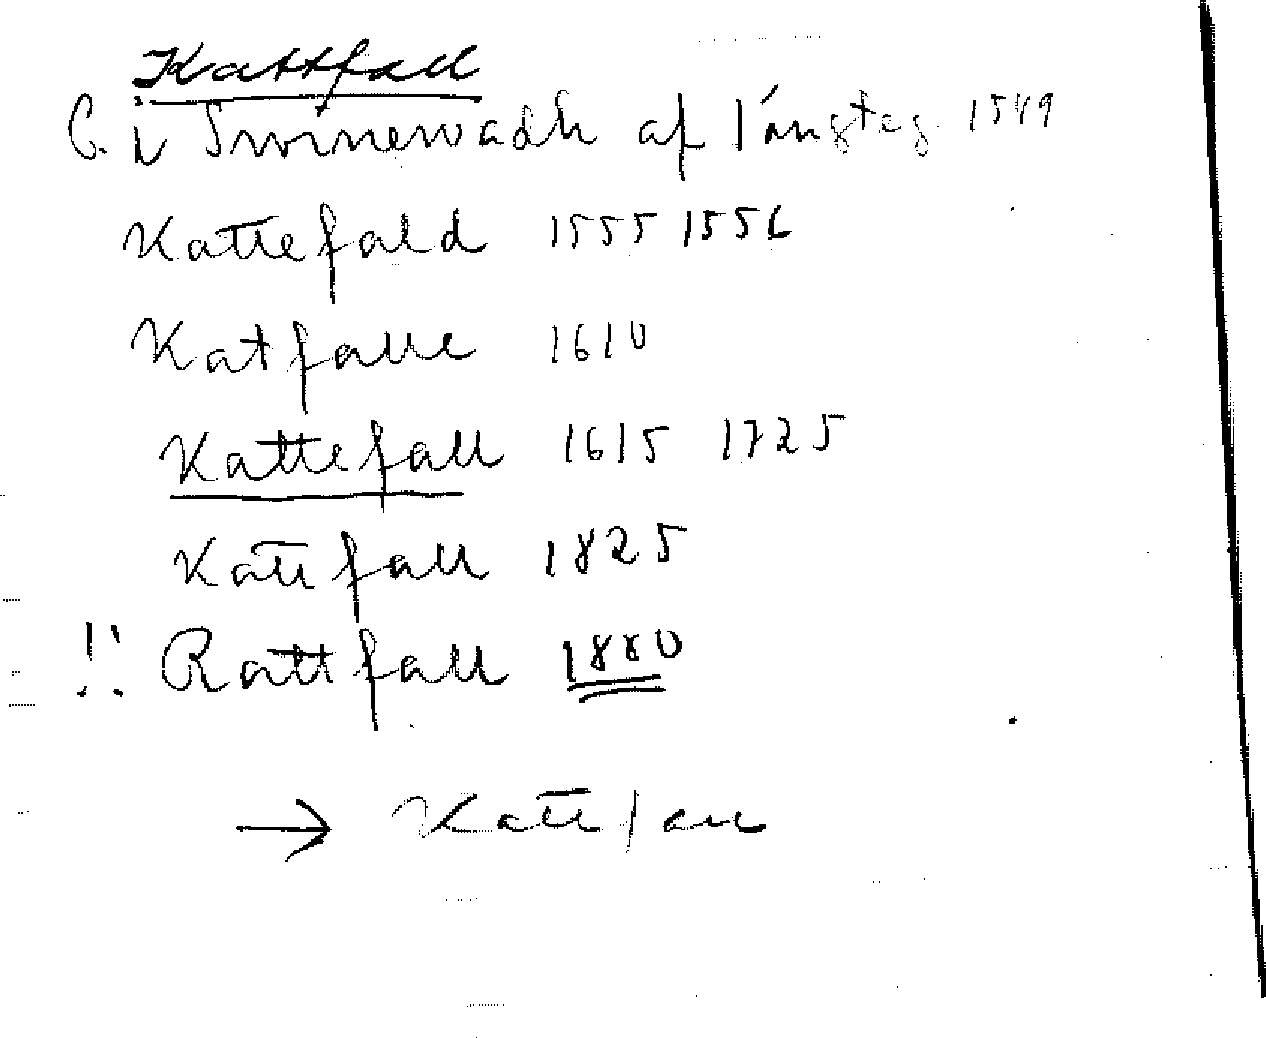 Kattfall
C. i Svinewadh af långteg 1549
Kattefald 1555 1556
Katfalle 1610
Kattefall 1615 1725
Kattfall 1825
!! Rattfall 1880
→ Kattfall